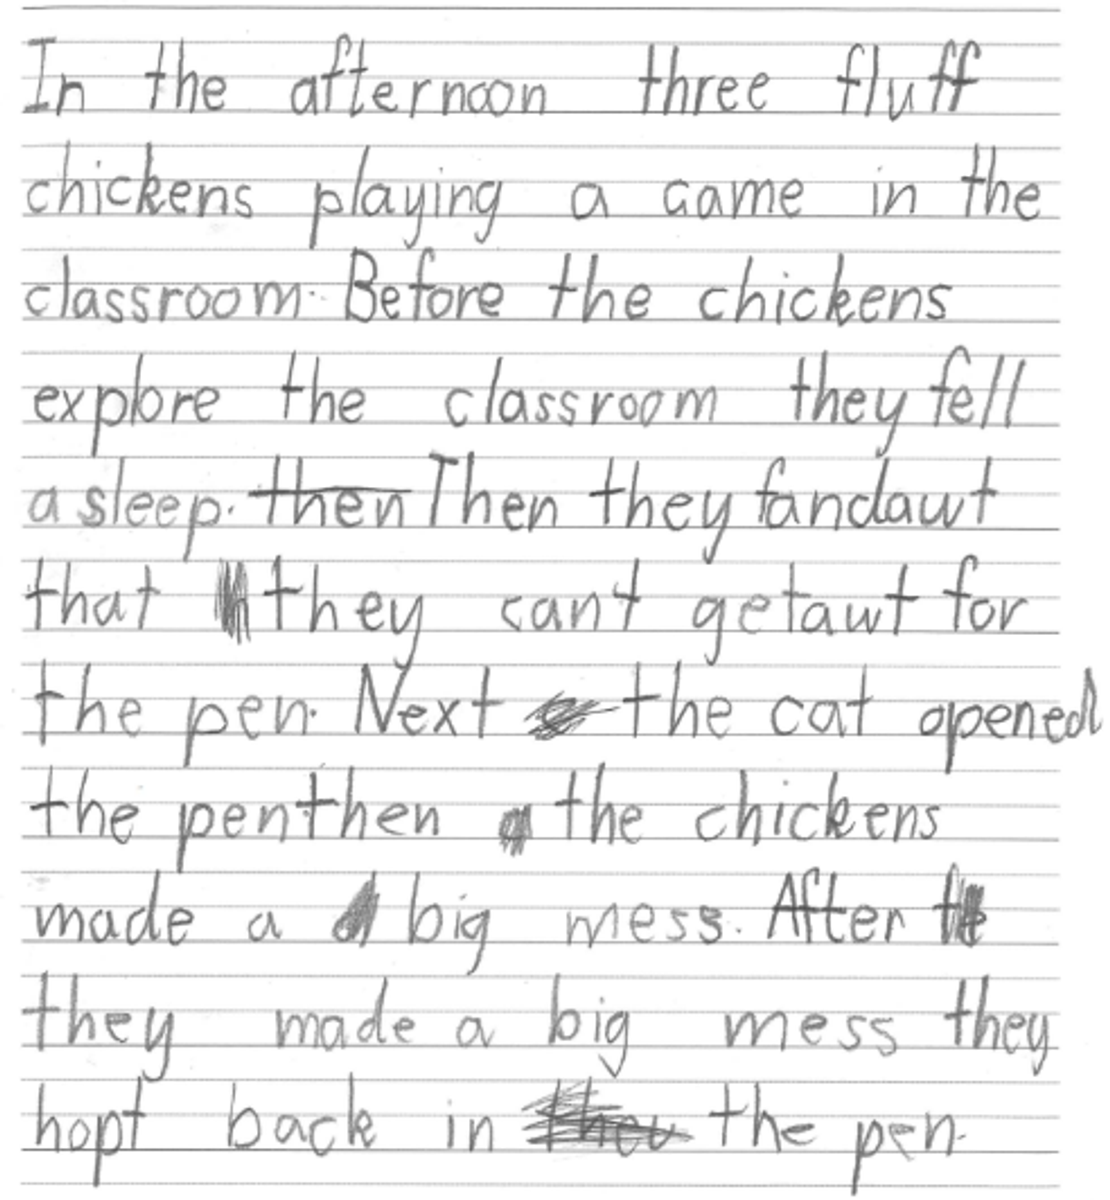 In the afternoon three fluff
chickens playing a game in the
classroom. Before the chickens
explore the classroom they fell
a sleep. then Then they fandawt
that they can't getawt for
the pen. Next the cat opened
the penthen the chickens
made a big mess. After
they made a big mess they
hopt back in the pen.